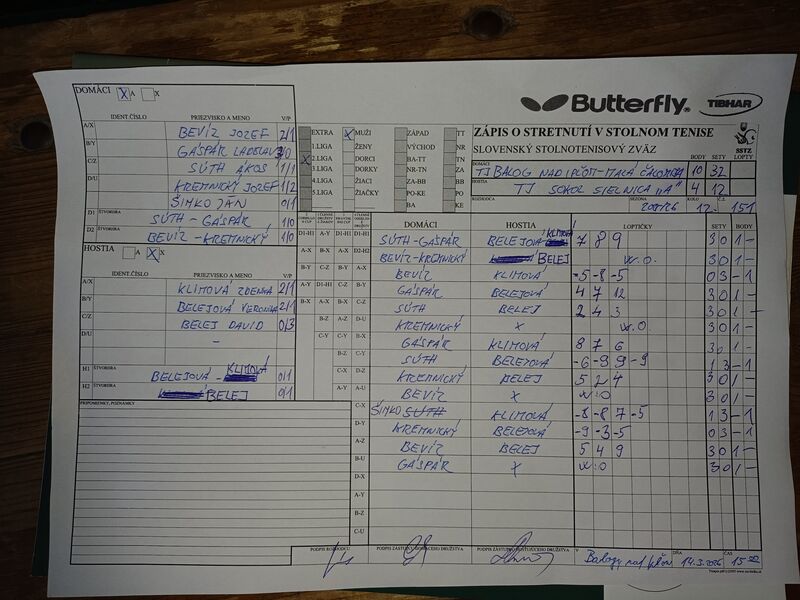 DOMÁCI X A X
Butterfly® TIBHAR
IDENT.ČÍSLO PRIEZVISKO A MENO V/P
A/X BEVÍZ JOZEF 2/1
B/Y GAŠPÁR LADISLAV 3/0
C/Z SÚTH ÁKOS 1/1
D/U KREMNICKÝ JOZEF 1/2
ŠIMKO JÁN 0/1
D1 ŠTVORHRA SÚTH - GAŠPÁR 1/0
D2 BEVÍZ - KREMNICKÝ 1/0
EXTRA X MUŽI ZÁPAD TT
1.LIGA ŽENY VÝCHOD NR
X 2.LIGA DORCI BA-TT TN
3.LIGA DORKY NR-TN ZA
4.LIGA ŽIACI ZA-BB BB
5.LIGA ŽIAČKY PO-KE PO
BA KE
ZÁPIS O STRETNUTÍ V STOLNOM TENISE
SLOVENSKÝ STOLNOTENISOVÝ ZVÄZ
SSTZ
DOMÁCI BODY SETY LOPTY
TJ BALOG NAD IPĽOM-MALÁ ČALOMIJA 10 32
HOSTIA TJ SOKOL SIELNICA "A" 4 12
ROZHODCA SEZONA KOLO Č.Z.
2025/26 12. 151
HOSTIA A X X
IDENT.ČÍSLO PRIEZVISKO A MENO V/P
A/X KLIMOVÁ ZDENKA 2/1
B/Y BELEJOVÁ VERONIKA 2/1
C/Z BELEJ DAVID 0/3
D/U -
H1 ŠTVORHRA BELEJOVÁ - KLIMOVÁ 0/1
H2 BELEJ 0/1
PRIPOMIENKY, POZNÁMKY
DOMÁCI HOSTIA LOPTIČKY SETY BODY
D1-H1 SÚTH-GAŠPÁR BELEJOVÁ KLIMOVÁ 7 8 9 3 0 1 -
D2-H2 BEVÍZ-KREMNICKÝ BELEJ W.O. 3 0 1 -
A-X BEVÍZ KLIMOVÁ -5 -8 -5 0 3 - 1
B-Y GAŠPÁR BELEJOVÁ 4 7 12 3 0 1 -
C-Z SÚTH BELEJ 2 4 3 3 0 1 -
D-U KREMNICKÝ X W.O 3 0 1 -
B-X GAŠPÁR KLIMOVÁ 8 7 6 3 0 1 -
C-Y SÚTH BELEJOVÁ -6 -9 9 -9 1 3 - 1
D-Z KREMNICKÝ BELEJ 5 2 4 3 0 1 -
A-U BEVÍZ X W.O 3 0 1 -
C-X ŠIMKO SÚTH KLIMOVÁ -8 -8 7 -5 1 3 - 1
D-Y KREMNICKÝ BELEJOVÁ -9 -3 -5 0 3 - 1
A-Z BEVÍZ BELEJ 5 4 9 3 0 1 -
B-U GAŠPÁR X W.O 3 0 1 -
D-X
A-Y
B-Z
C-U
PODPIS ROZHODCU PODPIS ZÁSTUPCU DOMÁCEHO DRUŽSTVA PODPIS ZÁSTUPCU HOSŤUJÚCEHO DRUŽSTVA V DŇA ČAS
Balogu nad Ipľom 14.3.2026 15 00